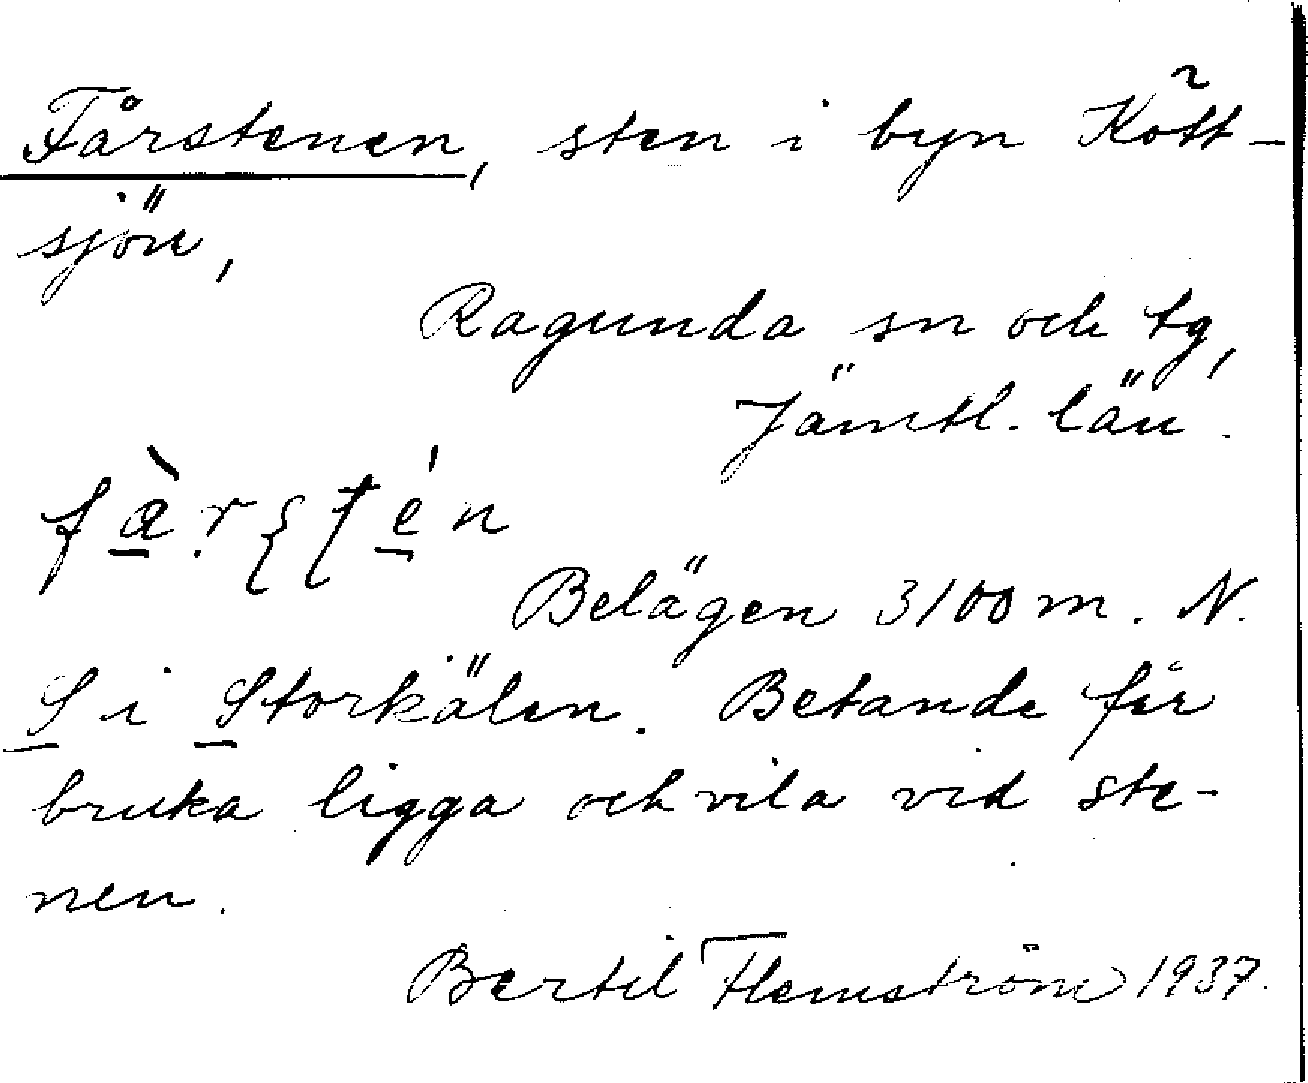 Fårstenen, sten i byn Kött-
sjön,
Ragunda sn och tg,
Jämtl. län.
Belägen 3100 m. N.
S i Storkälen. Betande får
bruka ligga och vila vid ste-
nen.
Bertil Flemström 1937.